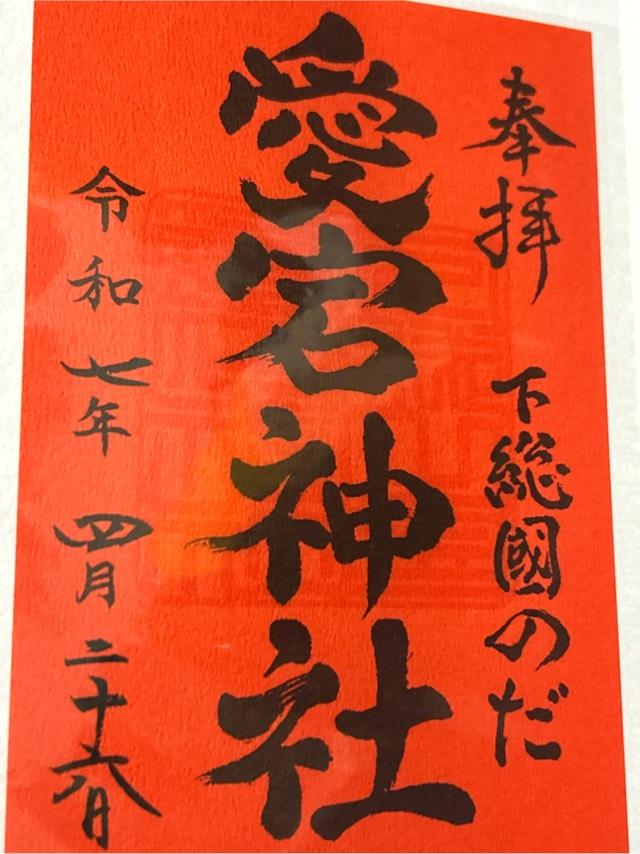 奉拝 下総國のだ
愛宕神社
令和七年 四月二十六日